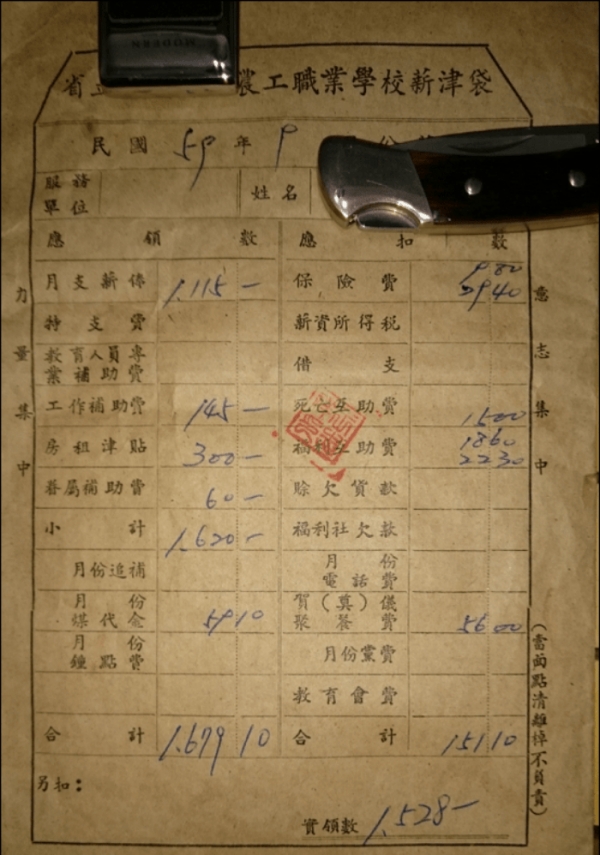 省立 農工職業學校薪津袋
民國 59 年 9
服務單位 姓名
應領數 應扣數
月支薪俸 1.115 — 保險費 9 80
29 40
特支費 薪資所得稅
教育人員專業補助費 借支
工作補助費 145 — 死亡互助費 15 00
房租津貼 300 — 福利互助費 18 60
22 30
眷屬補助費 60 — 賒欠貨款
小計 1.620 — 福利社欠款
月份追補 月份電話費
月份煤代金 59 10 賀(奠)儀聚餐費 56 00
月份鐘點費 月份黨費
教育會費
合計 1.679 10 合計 151 10
另扣：
實領數 1.528 —
力量集中
意志集中
(當面點清離櫃不負責)